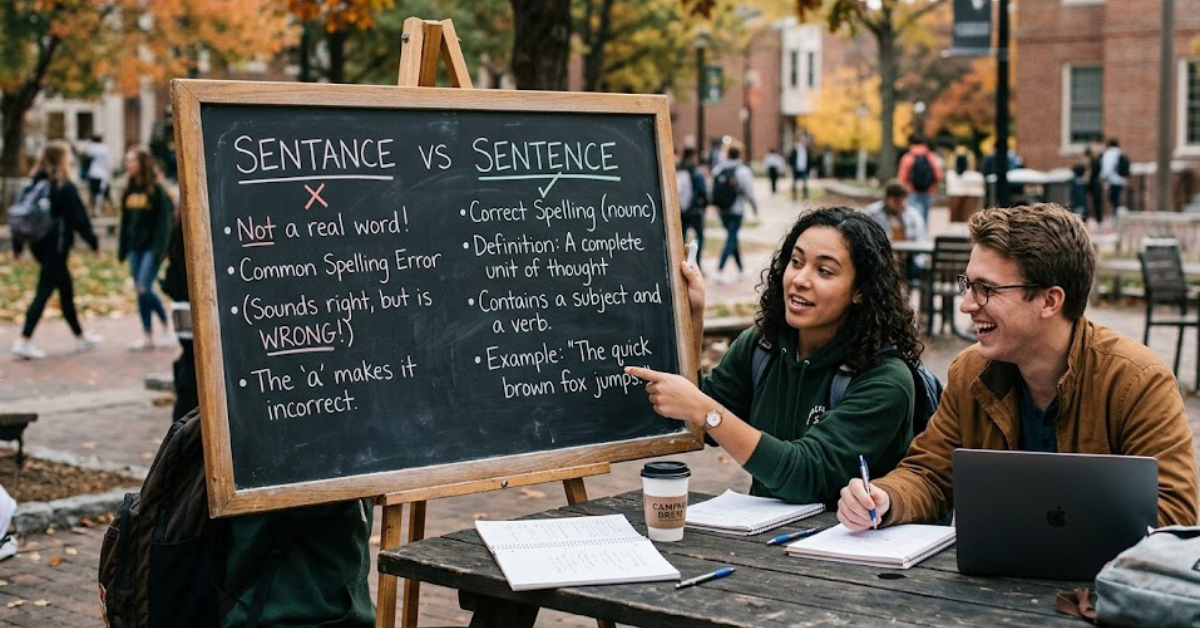 SENTANCE VS SENTENCE
✗
• Not a real word!
• Common Spelling Error
• (Sounds right, but is
WRONG!)
• The 'a' makes it
incorrect.
✓
• Correct Spelling (nounc)
• Definition: A complete
unit of thought
• Contains a subject and
a verb.
• Example: "The quick
brown fox jumps."